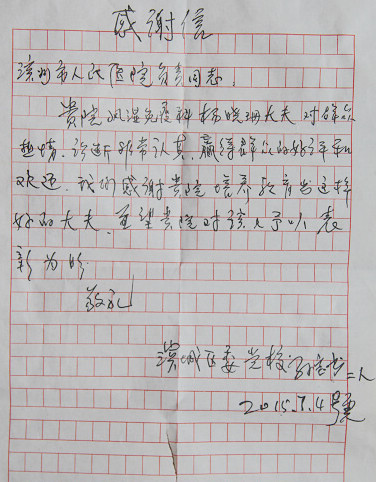 感谢信
滨州市人民医院负责同志：
贵院风湿免疫科杨晓珊大夫对群众
热情，诊断非常认真，赢得群众的好评和
欢迎。我们感谢贵院培养教育出这样
好的大夫，并望贵院对该人予以表
彰为盼
致礼
滨城区委党校 二人
2015.7.14号